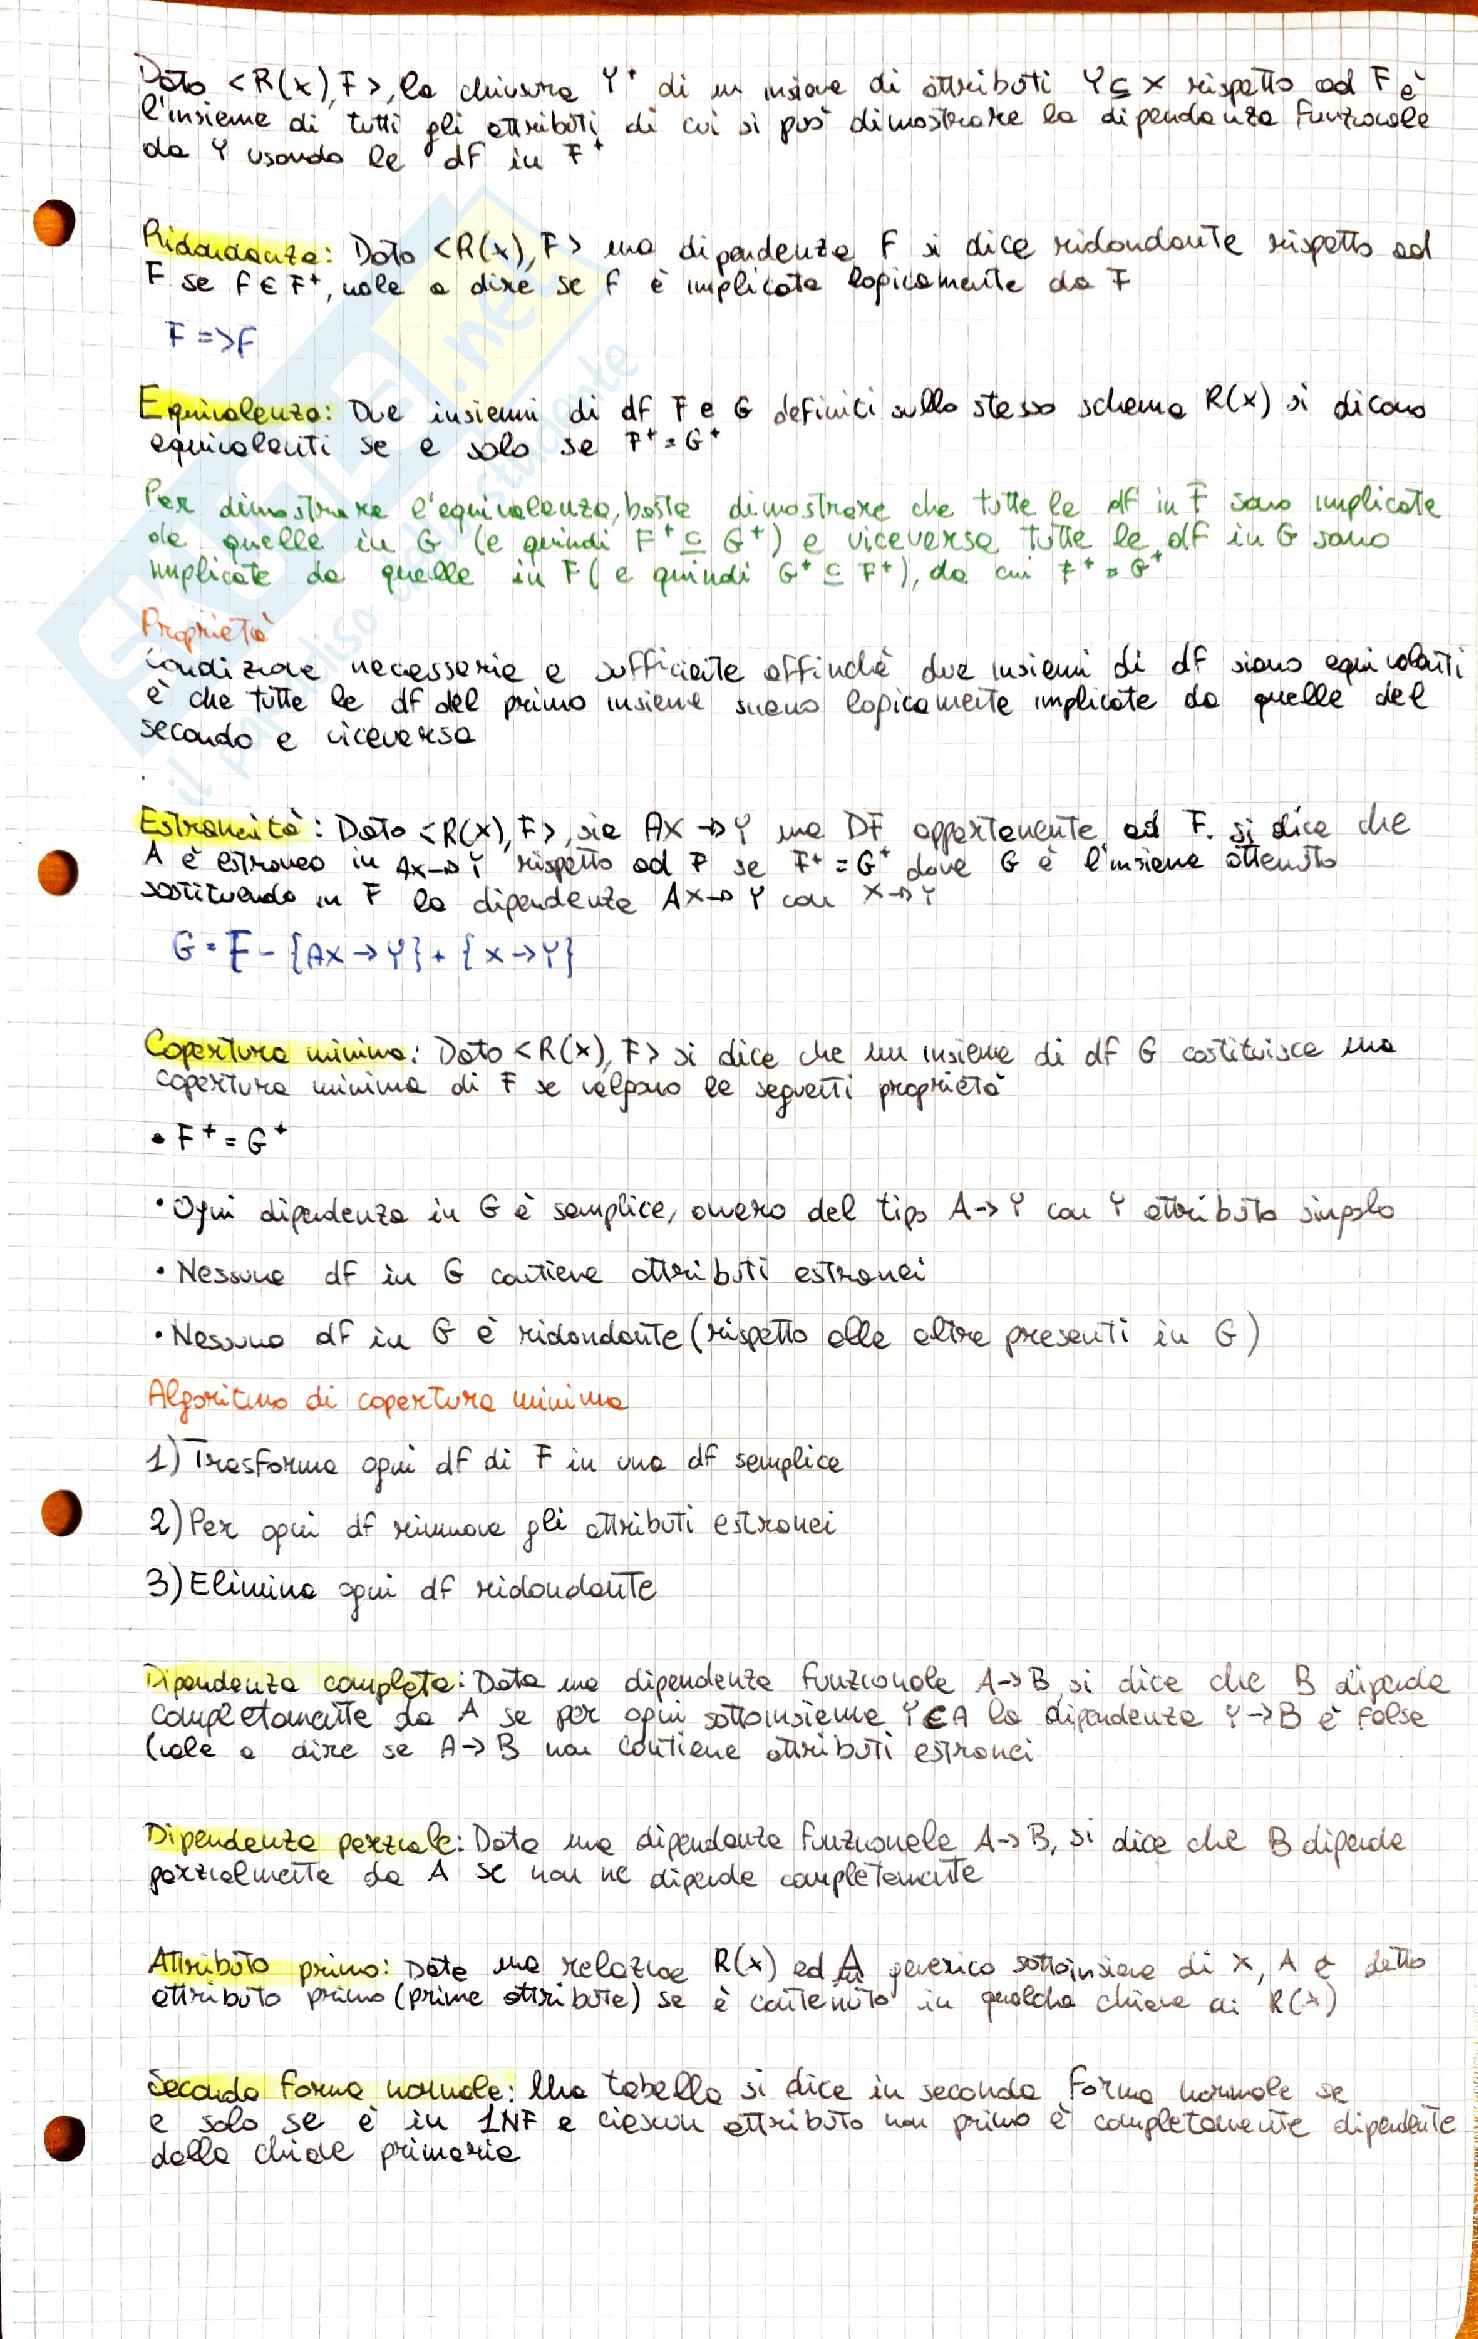 Dato <R(x),F>, la chiusura Y⁺ di un insieme di attributi Y⊆X rispetto ad F è
l'insieme di tutti gli attributi di cui si può dimostrare la dipendenza funzionale
da Y usando le df in F⁺
Ridondanza: Dato <R(x),F> una dipendenza f si dice ridondante rispetto ad
F se f∈F⁺, vale a dire se f è implicata logicamente da F
F=>f
Equivalenza: Due insiemi di df F e G definiti sullo stesso schema R(x) si dicono
equivalenti se e solo se F⁺=G⁺
Per dimostrare l'equivalenza, basta dimostrare che tutte le df in F sono implicate
da quelle in G (e quindi F⁺⊆G⁺) e viceversa tutte le df in G sono
implicate da quelle in F (e quindi G⁺⊆F⁺), da cui F⁺=G⁺
Proprietà
Condizione necessaria e sufficiente affinchè due insiemi di df siano equivalenti
è che tutte le df del primo insieme siano logicamente implicate da quelle del
secondo e viceversa
Estraneità: Dato <R(x),F>, sia AX→Y una DF appartenente ad F. si dice che
A è estraneo in AX→Y rispetto ad F se F⁺=G⁺ dove G è l'insieme ottenuto
sostituendo in F la dipendenza AX→Y con X→Y
G=F-{AX→Y}+{X→Y}
Copertura minima: Dato <R(x),F> si dice che un insieme di df G costituisce una
copertura minima di F se valgono le seguenti proprietà
• F⁺=G⁺
• Ogni dipendenza in G è semplice, ovvero del tipo A→Y con Y attributo singolo
• Nessuna df in G contiene attributi estranei
• Nessuna df in G è ridondante (rispetto alle altre presenti in G)
Algoritmo di copertura minima
1) Trasforma ogni df di F in una df semplice
2) Per ogni df rimuove gli attributi estranei
3) Elimina ogni df ridondante
Dipendenza completa: Data una dipendenza funzionale A→B, si dice che B dipende
completamente da A se per ogni sottoinsieme Y⊂A la dipendenza Y→B è falsa
(vale a dire se A→B non contiene attributi estranei
Dipendenza parziale: Data una dipendenza funzionale A→B, si dice che B dipende
parzialmente da A se non ne dipende completamente
Attributo primo: Data una relazione R(x) ed A generico sottoinsieme di X, A è detto
attributo primo (prime attribute) se è contenuto in qualche chiave di R(x)
Seconda forma normale: Una tabella si dice in seconda forma normale se
e solo se è in 1NF e ciascun attributo non primo è completamente dipendente
dalla chiave primaria